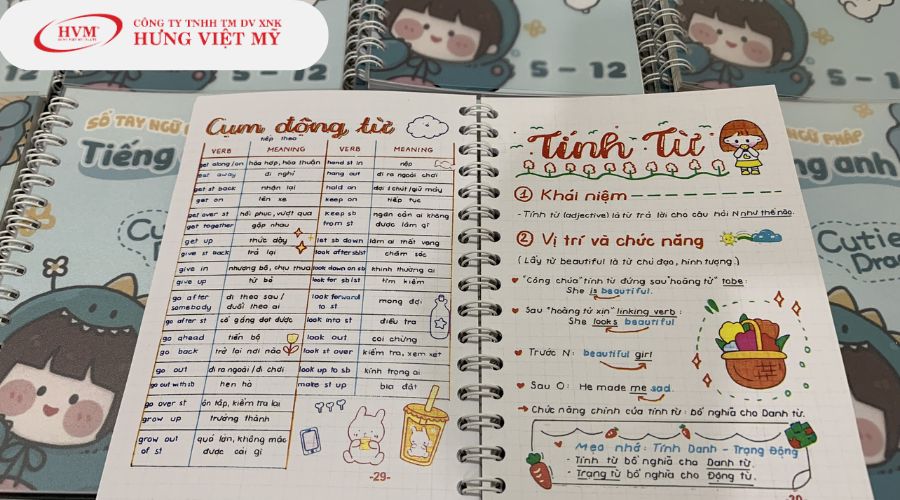 HVM
CÔNG TY TNHH TM DV XNK
HƯNG VIỆT MỸ
5 - 12
5 - 12
SỔ TAY NGỮ
Tiếng
Cutie
Cụm động từ
tiếp theo
VERB MEANING VERB MEANING
get along/on hòa hợp, hòa thuận hand st in nộp
get away đi nghỉ hang out đi ra ngoài chơi
get st back nhận lại hold on đợi 1 chút/giữ máy
get on lên xe keep on tiếp tục
get over st hồi phục, vượt qua keep sb from st ngăn cản ai không được làm gì
get together gặp nhau
get up thức dậy let sb down làm ai thất vọng
give st back trả lại look after sb/st chăm sóc
give in nhượng bộ, chịu thua look down on sb khinh thường ai
give up từ bỏ look for sb/st tìm kiếm
go after somebody đi theo sau / đuổi theo ai look forward to st mong đợi
go after st cố gắng đạt được look into st điều tra
go ahead tiến bộ look out coi chừng
go back trở lại nơi nào look st over kiểm tra, xem xét
go out đi ra ngoài / đi chơi look up to sb kính trọng ai
go out with sb hẹn hò make st up bịa đặt
go over st ôn tập, kiểm tra lại
grow up trưởng thành
grow out of st quá lớn, không mặc được cái gì
-29-
Tính Từ
1 Khái niệm
- Tính từ (adjective) là từ trả lời cho câu hỏi N như thế nào.
2 Vị trí và chức năng
(Lấy từ beautiful là từ chủ đạo, hình tượng.)
"Công chúa" tính từ đứng sau "hoàng tử" tobe:
She is beautiful.
Sau "hoàng tử xin" linking verb:
She looks beautiful
Trước N: beautiful girl
Sau O: He made me sad.
→ Chức năng chính của tính từ: bổ nghĩa cho Danh từ.
Mẹo nhớ: Tính Danh - Trạng Động
- Tính từ bổ nghĩa cho Danh từ.
- Trạng từ bổ nghĩa cho Động từ.
PHÁP
anh
Cutie